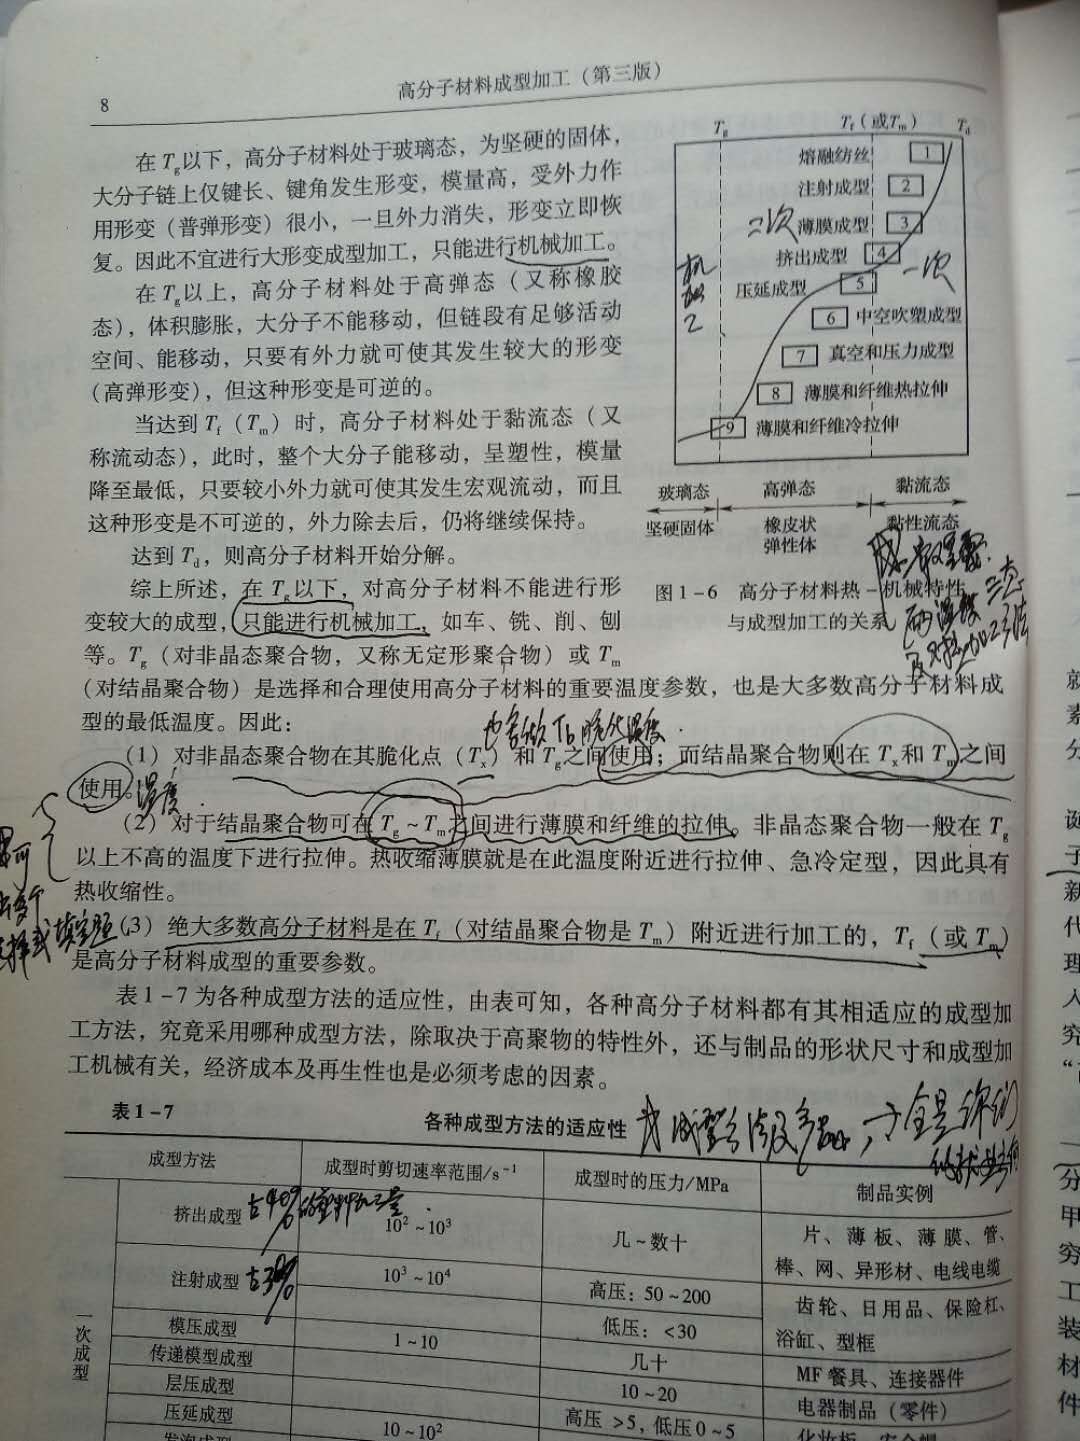 8
高分子材料成型加工（第三版）
在Tg以下，高分子材料处于玻璃态，为坚硬的固体，
大分子链上仅键长、键角发生形变，模量高，受外力作
用形变（普弹形变）很小，一旦外力消失，形变立即恢
复。因此不宜进行大形变成型加工，只能进行机械加工。
在Tg以上，高分子材料处于高弹态（又称橡胶
态），体积膨胀，大分子不能移动，但链段有足够活动
空间、能移动，只要有外力就可使其发生较大的形变
（高弹形变），但这种形变是可逆的。
当达到Tf（Tm）时，高分子材料处于黏流态（又
称流动态），此时，整个大分子能移动，呈塑性，模量
降至最低，只要较小外力就可使其发生宏观流动，而且
这种形变是不可逆的，外力除去后，仍将继续保持。
达到Td，则高分子材料开始分解。
综上所述，在Tg以下，对高分子材料不能进行形
变较大的成型，只能进行机械加工，如车、铣、削、刨
等。Tg（对非晶态聚合物，又称无定形聚合物）或Tm
（对结晶聚合物）是选择和合理使用高分子材料的重要温度参数，也是大多数高分子材料成
型的最低温度。因此：
Tg
Tf（或Tm）
Td
熔融纺丝 1
注射成型 2
二次
薄膜成型 3
挤出成型 4
一次
压延成型 5
机加工
6 中空吹塑成型
7 真空和压力成型
8 薄膜和纤维热拉伸
9 薄膜和纤维冷拉伸
玻璃态 高弹态 黏流态
坚硬固体 橡皮状 黏性流态
弹性体
图1-6 高分子材料热-机械特性
与成型加工的关系
也会做Tb脆化温度
（1）对非晶态聚合物在其脆化点（Tx）和Tg之间使用；而结晶聚合物则在Tx和Tm之间
使用。
温度
（2）对于结晶聚合物可在Tg～Tm之间进行薄膜和纤维的拉伸。非晶态聚合物一般在Tg
以上不高的温度下进行拉伸。热收缩薄膜就是在此温度附近进行拉伸、急冷定型，因此具有
热收缩性。
填空题
（3）绝大多数高分子材料是在Tf（对结晶聚合物是Tm）附近进行加工的，Tf（或Tm）
是高分子材料成型的重要参数。
表1-7为各种成型方法的适应性，由表可知，各种高分子材料都有其相适应的成型加
工方法，究竟采用哪种成型方法，除取决于高聚物的特性外，还与制品的形状尺寸和成型加
工机械有关，经济成本及再生性也是必须考虑的因素。
表1-7 各种成型方法的适应性
成型方法 成型时剪切速率范围/s⁻¹ 成型时的压力/MPa 制品实例
一次成型
挤出成型 10²～10³ 几～数十 片、薄板、薄膜、管、
棒、网、异形材、电线电缆
注射成型 10³～10⁴ 高压：50～200 齿轮、日用品、保险杠、
低压：<30 浴缸、型框
模压成型 1～10 几十 MF餐具、连接器件
传递模型成型 10～20 电器制品（零件）
层压成型 高压>5，低压0～5
压延成型 10～10²